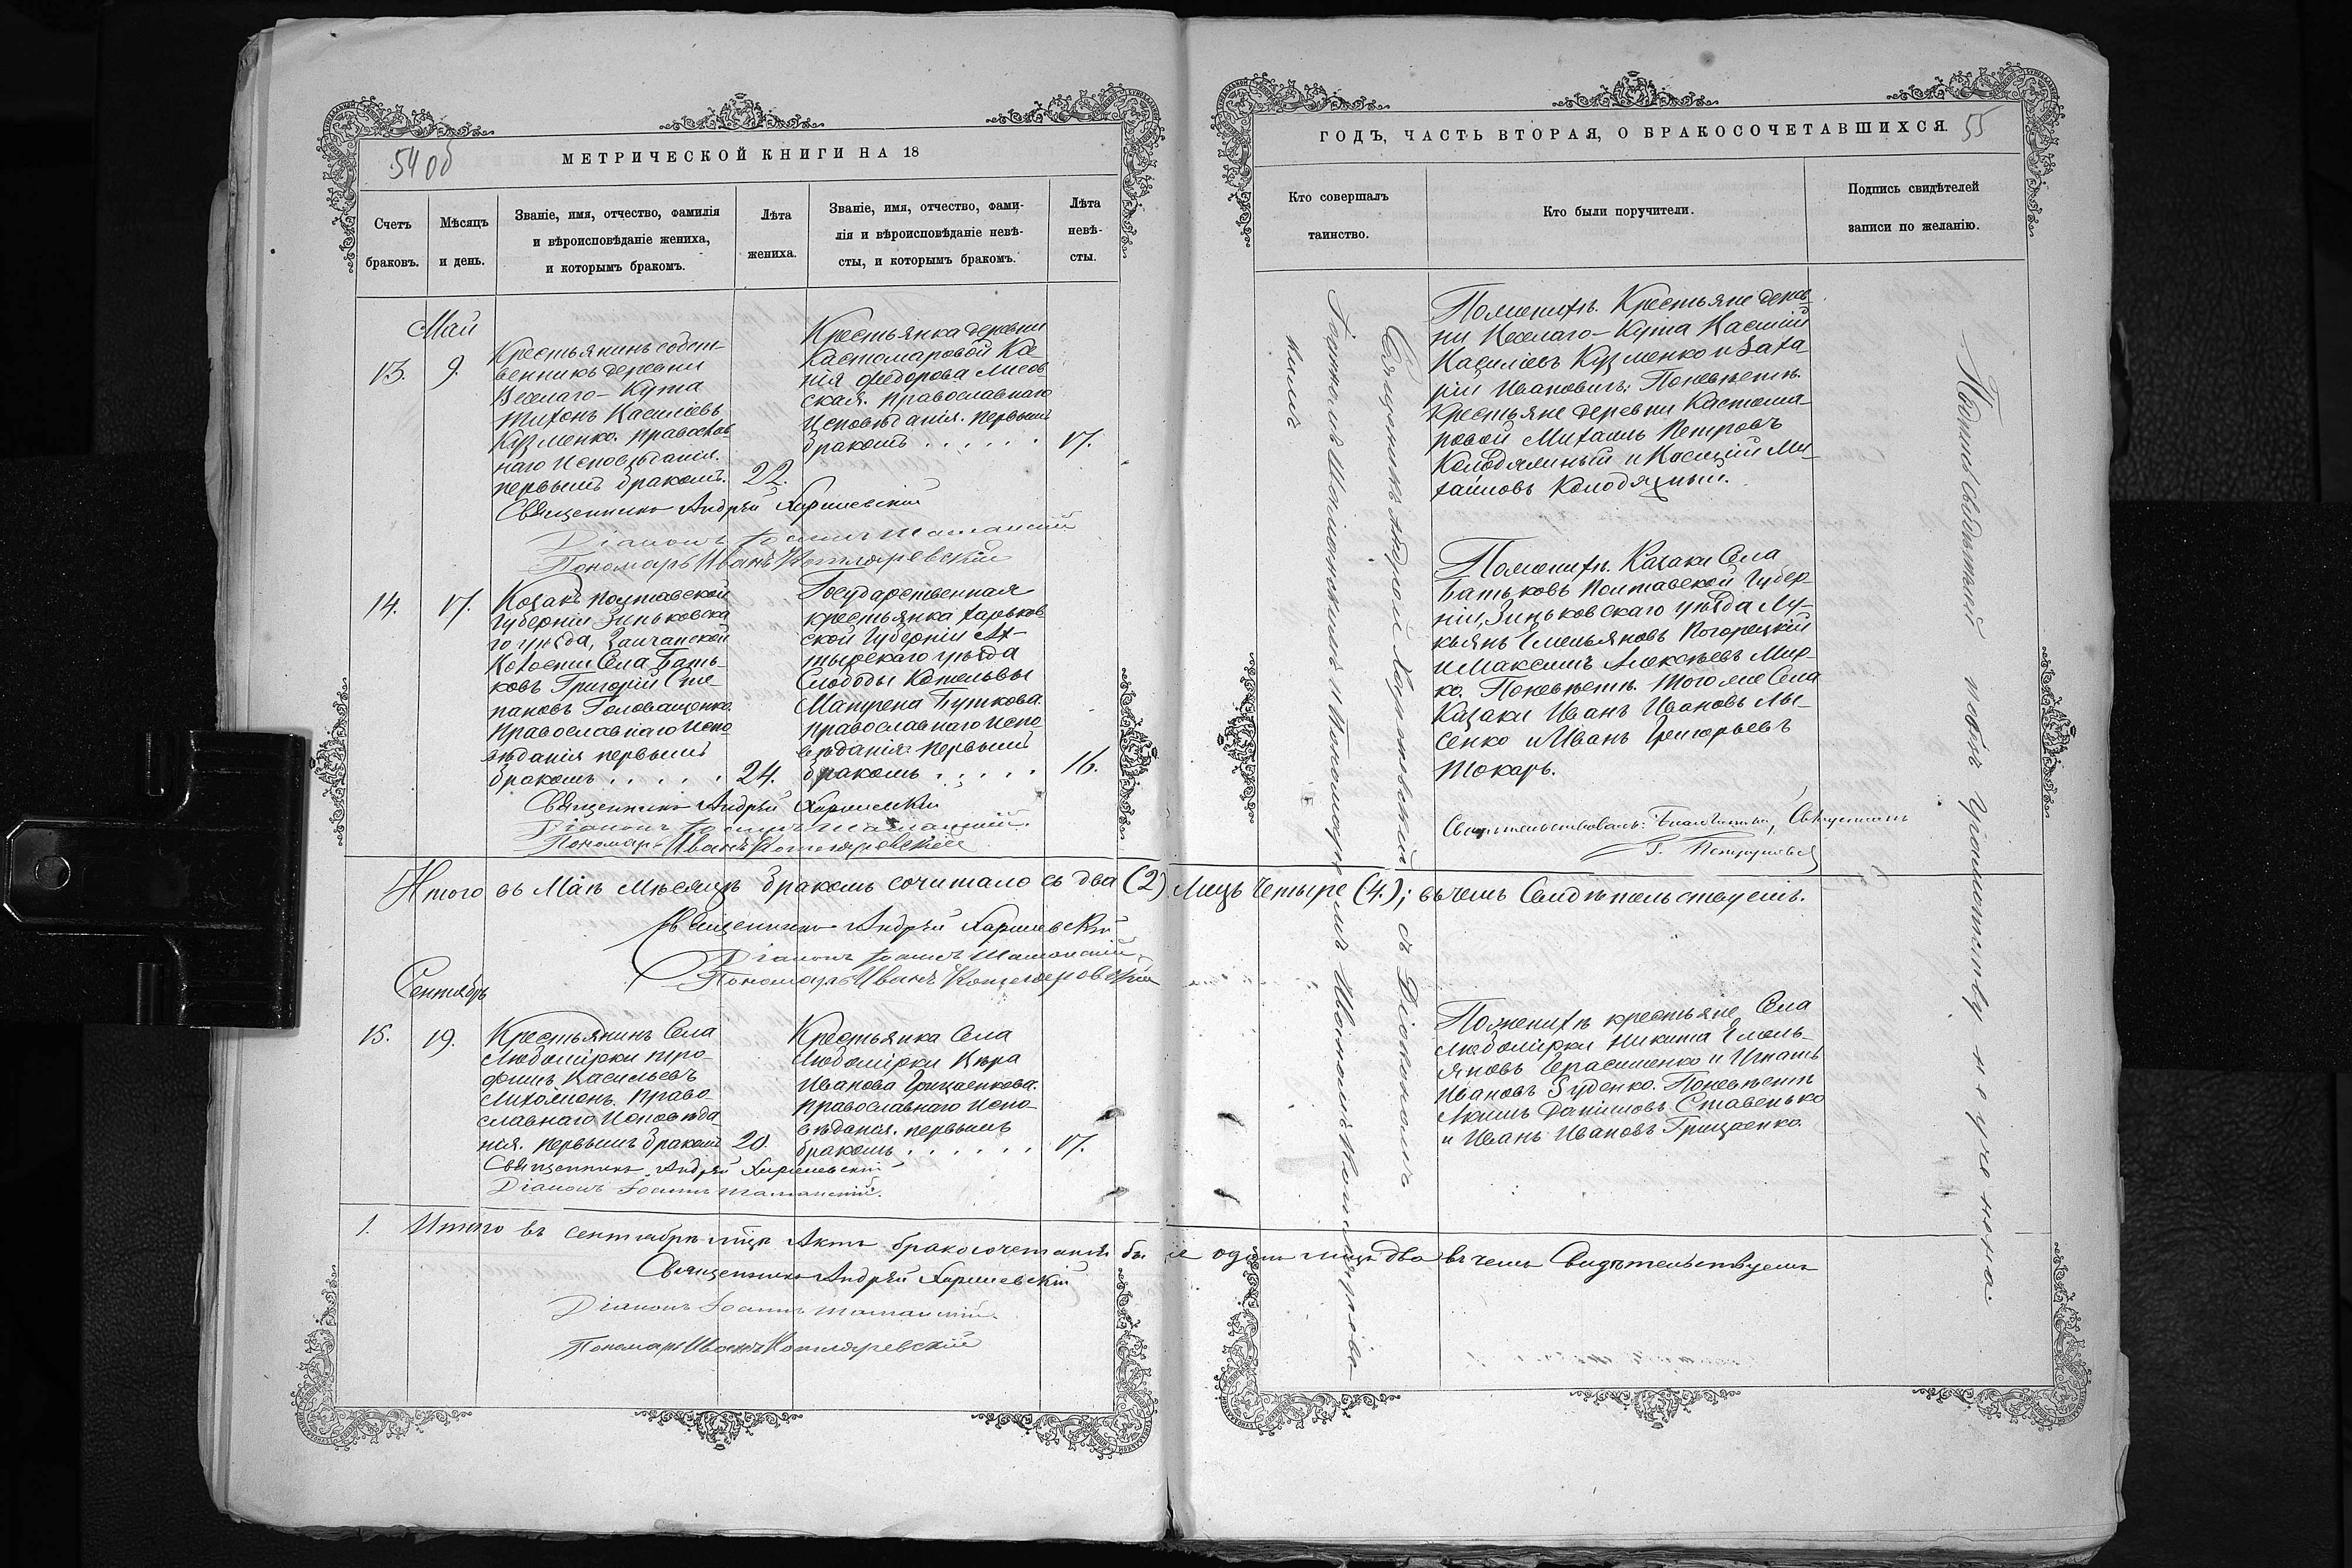 54 об
МЕТРИЧЕСКОЙ КНИГИ НА 18
Счетъ
браковъ.
Мѣсяцъ
и день.
Званіе, имя, отчество, фамилія
и вѣроисповѣданіе жениха,
и которымъ бракомъ.
Лѣта
жениха.
Званіе, имя, отчество, фами-
лія и вѣроисповѣданіе невѣ-
сты, и которымъ бракомъ.
Лѣта
невѣ-
сты.
Май
13.
9.
Крестьянинъ собст-
венникъ деревни
Веселаго-Кута
Тихонъ Василіевъ
Кузменко. православ-
наго исповѣданія.
первымъ бракомъ.
22.
Крестьянка деревни
Кастомаровой
Федорова Лисов-
ская. православнаго
исповѣданія. первымъ
бракомъ . . . . . .
17.
Священникъ Андрей
Діаконъ Іоаннъ
Пономарь Иванъ Котляревскій
14.
17.
Козакъ Полтавской
губерніи Зиньковска-
го уѣзда,
волости Села Бать-
ковъ Григорій Сте-
пановъ Головащенко.
Православнаго испо-
вѣданія первымъ
бракомъ . . . . .
24.
Государственная
крестьянка Харьков-
ской губерніи Ах-
тырскаго уѣзда
Слободы Котельвы
Буткова.
православнаго испо-
вѣданія. первымъ
бракомъ . . . . .
16.
Священникъ Андрей
Діаконъ Іоаннъ
Пономарь Иванъ Котляревскій
Итого въ Маѣ мѣсяцѣ бракомъ сочитало съ два (2) лицъ четыре (4.); въ чемъ Свидѣтельствуемъ.
Священникъ Андрей
Діаконъ Іоаннъ
Пономарь Иванъ Котляревскій
Сентябрь
15.
19.
Крестьянинъ Села
Любомірки Тро-
фимъ Васильевъ
Право-
славнаго исповѣда-
нія. первымъ бракомъ
20.
Крестьянка Села
Любомірки Вѣра
Иванова Грицаенкова.
православнаго испо-
вѣданія. первымъ
бракомъ . . . . . .
17.
Священникъ Андрей
Діаконъ Іоаннъ
1. Итого въ сентябрѣ мцѣ актъ бракосочетанія одинъ лицъ два въ чемъ Свидѣтельствуемъ
Священникъ Андрей
Діаконъ Іоаннъ
Пономарь Иванъ Котляревскій
ГОДЪ, ЧАСТЬ ВТОРАЯ, О БРАКОСОЧЕТАВШИХСЯ.
55
Кто совершалъ
таинство.
Кто были поручители.
Подпись свидѣтелей
записи по желанію.
Священникъ Андрей съ Діакономъ
и Пономаремъ
По женихѣ. Крестьяне дерев-
ни Веселаго-Кута Василій
Василіевъ Кузменко и Заха-
рій Ивановичъ; По невѣстѣ.
Крестьяне деревни Кастома-
ровой Михаилъ Петровъ
Колодяжный и Василій Ми-
хайловъ Колодяжный.
По женихѣ. Казаки Села
Батьковъ Полтавской Губер-
ніи, Зиньковскаго уѣзда Лу-
кьянъ Емельяновъ Погорецкій
и Максимъ Алексѣевъ Мир-
ко. По невѣстѣ. того же Села
Казаки Иванъ Ивановъ Лы-
сенко и Иванъ Григорьевъ
Токарь.
Свидѣтельствовалъ: Благочинный, Священникъ
По женихѣ крестьяне Села
Любомірки Никита Емель-
яновъ Герасименко и Игнатъ
Ивановъ Зуденко. По невѣстѣ
Даниловъ Ставенько
и Иванъ Ивановъ Грицаенко.